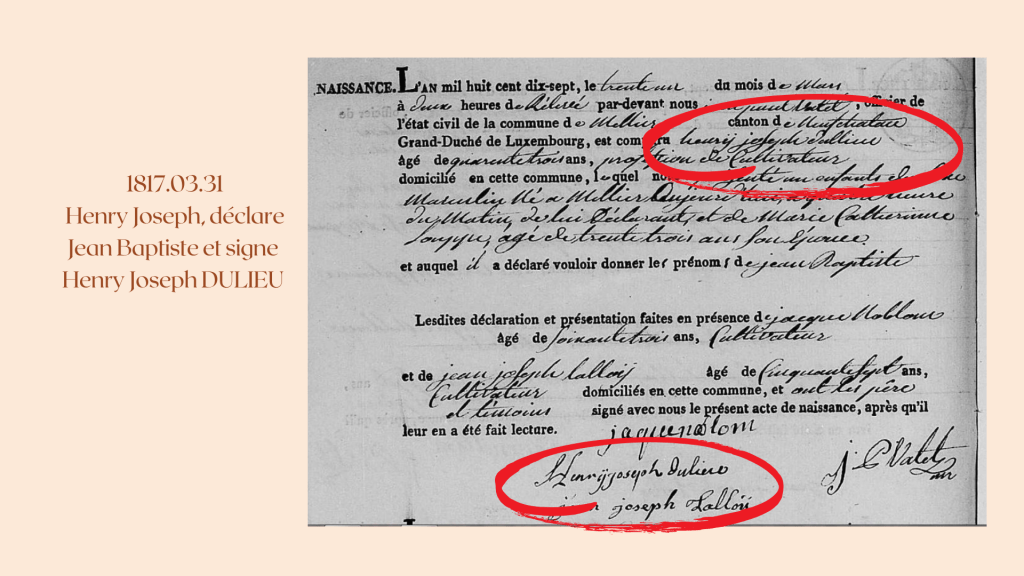 1817.03.31
Henry Joseph, déclare
Jean Baptiste et signe
Henry Joseph DULIEU
NAISSANCE. L'AN mil huit cent dix-sept, le trente un du mois de Mars
à deux heures de Rélevée par-devant nous jean paul Valet, officier de
l'état civil de la commune de Mellier canton de Neufchateau
Grand-Duché de Luxembourg, est comparu henrÿ joseph dulieu
âgé de quarente trois ans, profession de Cultivateur
domicilié en cette commune, lequel nous présenté un enfants de
Masculin Né a Mellier aujourd'hui, a quatre heure
du Matin, de lui Déclarants et de Marie Catherinne
agé de trente trois ans Son Epouse
et auquel il a déclaré vouloir donner les prénoms de jean Baptiste
Lesdites déclaration et présentation faites en présence de jacque Noblom
âgé de Soixante trois ans, Cultivateur
et de jean joseph Lalloÿ âgé de Cinquante Sept ans,
Cultivateur domiciliés en cette commune, et ont les père
et témoins signé avec nous le présent acte de naissance, après qu'il
leur en a été fait lecture. jaque noblom
Henrÿ joseph dulieu
jean joseph Lalloÿ
j P Valet